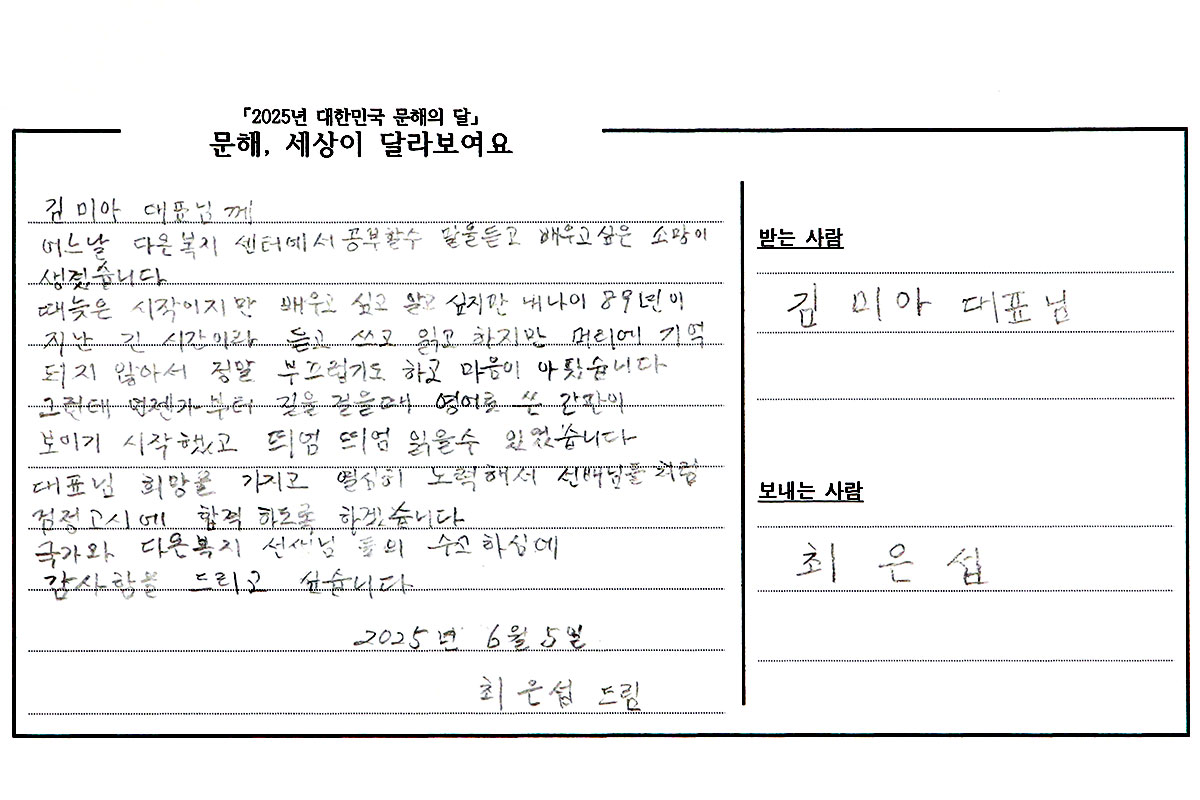 「2025년 대한민국 문해의 달」
문해, 세상이 달라보여요
김미아 대표님께
어느날 다온복지 센터에서 공부할수 말을듣고 배우고싶은 소망이
생겼습니다
때늦은 시작이지만 배우고 싶고 알고 싶지만 내나이 89년이
지난 긴 시간이라 듣고 쓰고 읽고 하지만 머리에 기억
되지 않아서 정말 부끄럽기도 하고 마음이 아팠습니다
그런데 언젠가부터 길을 걸을때 영어로 쓴 간판이
보이기 시작했고 띄엄 띄엄 읽을수 있었습니다
대표님 희망을 가지고 열심히 노력해서 선배님들처럼
검정고시에 합격 하도록 하겠습니다
국가와 다온복지 선생님 들의 수고하심에
감사함을 드리고 싶습니다
2025년 6월 5일
최은섭 드림
받는 사람
김미아 대표님
보내는 사람
최은섭